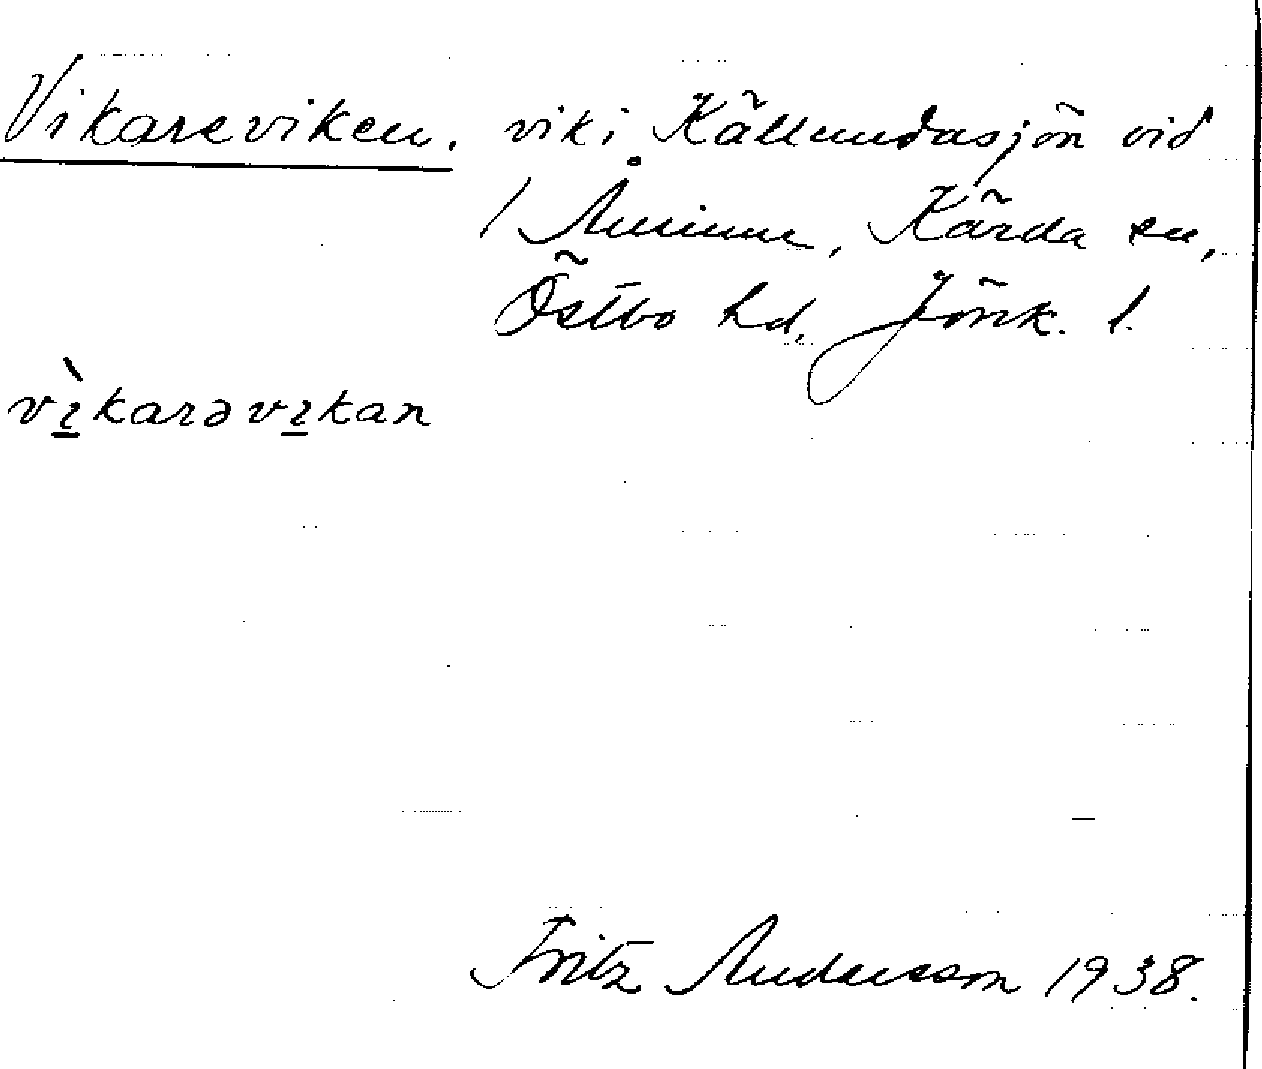 Vikareviken. vik i Källundasjön vid
/ Åminne, Kärda sn,
Östbo hd, Jönk. l.
vìkarəvikan
Fritz Andersson 1938.